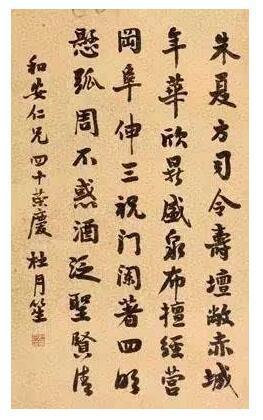 朱夏方司令壽壇敞赤城
年華欣鼎盛泉布擅經營
岡阜伸三祝门闌著四明
懸弧周不惑酒泛聖賢清
和安仁兄四十榮慶 杜月笙